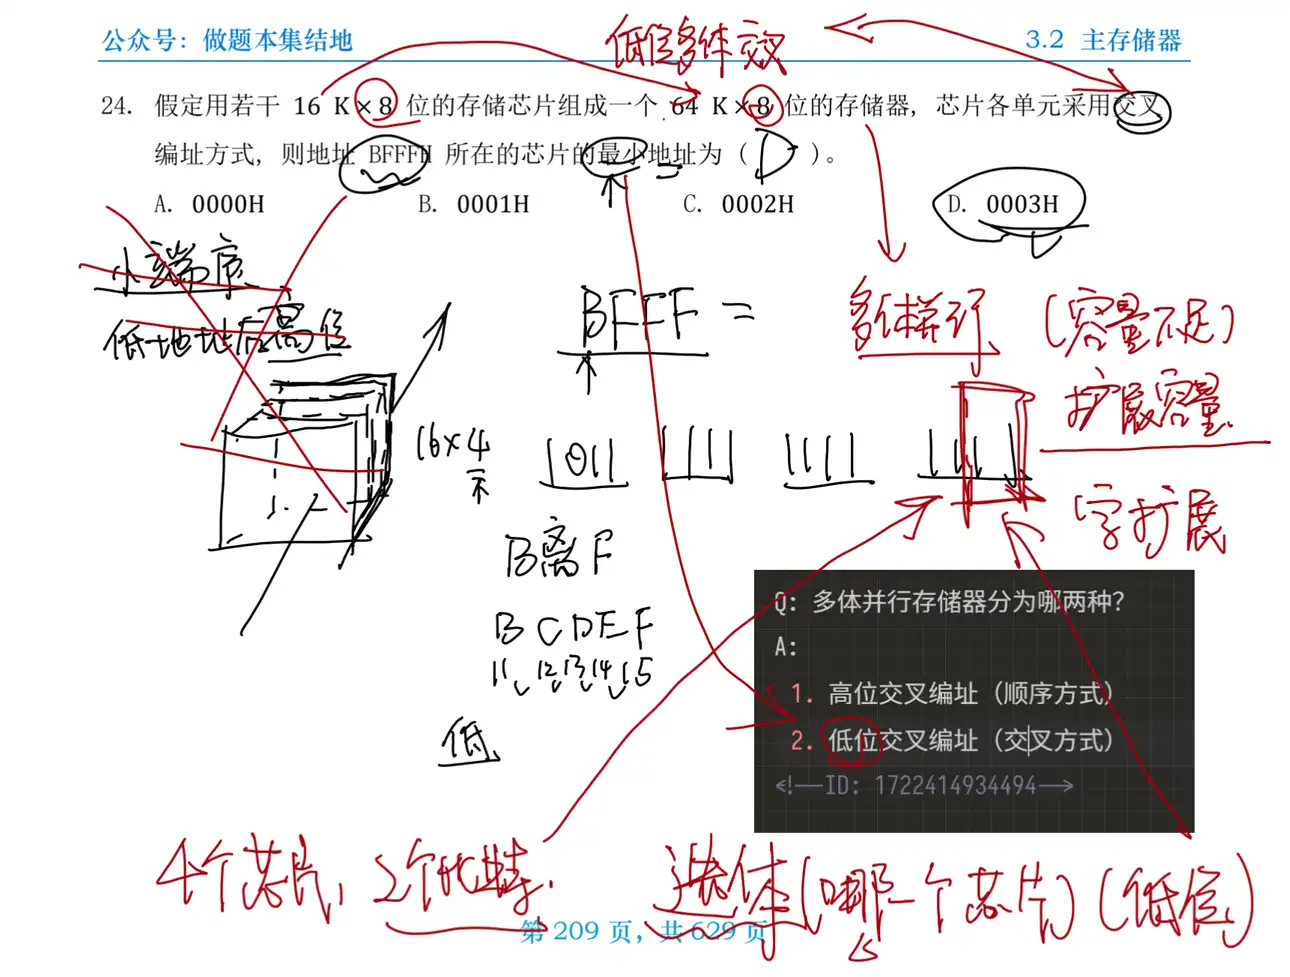 公众号：做题本集结地
3.2 主存储器
低位多体交叉
24. 假定用若干 16 K × 8 位的存储芯片组成一个 64 K × 8 位的存储器，芯片各单元采用交叉
编址方式，则地址 BFFFH 所在的芯片的最小地址为（ D ）。
A. 0000H B. 0001H C. 0002H D. 0003H
小端序
低地址存高位
BFFF =
多体并行
(容量不足)
扩展容量
字扩展
16×4
1011 1111 1111 1111
B离F
B C D E F
11 12 13 14 15
低
Q: 多体并行存储器分为哪两种？
A:
1. 高位交叉编址（顺序方式）
2. 低位交叉编址（交叉方式）
<!--ID: 1722414934494-->
4个芯片，2个比特.
选体(哪一个芯片)(低位)
第 209 页，共 629 页